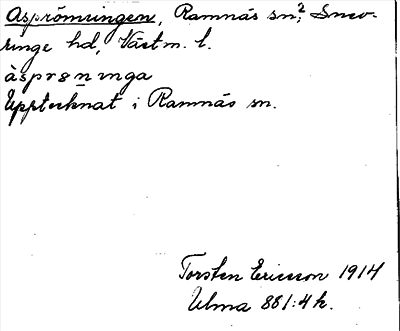 Asprömningen, Ramnäs sn?, Snev-
ringe hd, Västm. l.
àsprömnıŋa
Upptecknat i Ramnäs sn.
Torsten Ericsson 1914
Ulma 881:4 k.